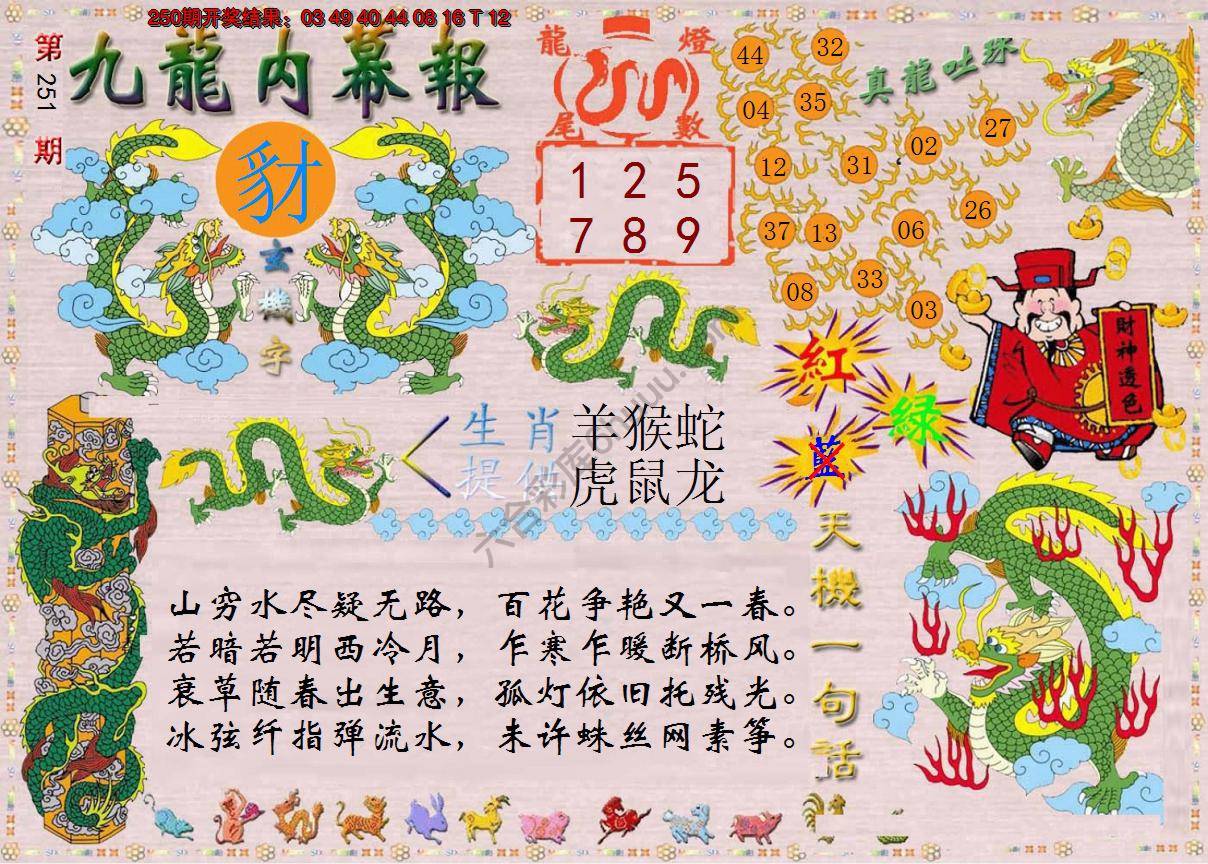 250期开奖结果：03 49 40 44 08 16 T 12
第251期
九龍内幕報
豺
玄機字
龍燈
尾數
1 2 5
7 8 9
真龍吐珠
44 32
04 35
12 31 02 27
37 13 06 26
08 33 03
財神透色
紅
綠
藍
生肖 羊猴蛇
提供 虎鼠龙
天機一句話
山穷水尽疑无路，百花争艳又一春。
若暗若明西冷月，乍寒乍暖断桥风。
衰草随春出生意，孤灯依旧托残光。
冰弦纤指弹流水，未许蛛丝网素筝。